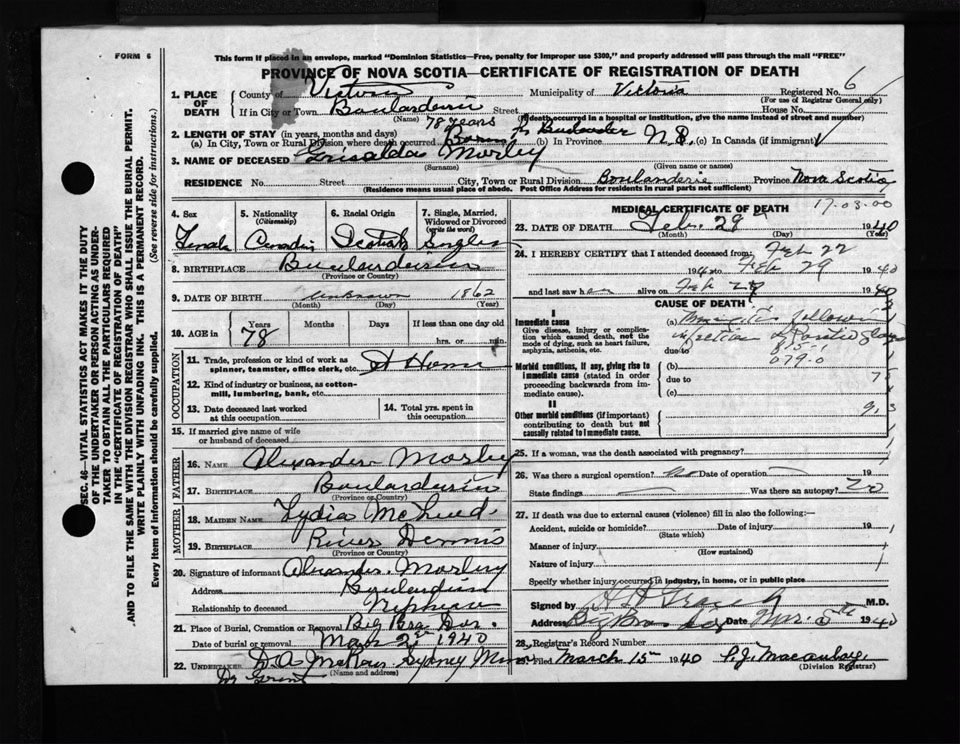 FORM 6
This form if placed in an envelope, marked "Dominion Statistics—Free, penalty for improper use $300," and properly addressed will pass through the mail "FREE"
PROVINCE OF NOVA SCOTIA—CERTIFICATE OF REGISTRATION OF DEATH
SEC. 46—VITAL STATISTICS ACT MAKES IT THE DUTY
OF THE UNDERTAKER OR PERSON ACTING AS UNDER-
TAKER TO OBTAIN ALL THE PARTICULARS REQUIRED
IN THE "CERTIFICATE OF REGISTRATION OF DEATH"
AND TO FILE THE SAME WITH THE DIVISION REGISTRAR WHO SHALL ISSUE THE BURIAL PERMIT.
WRITE PLAINLY WITH UNFADING INK. THIS IS A PERMANENT RECORD.
Every item of information should be carefully supplied. (See reverse side for instructions.)
1. PLACE OF DEATH
County of Victoria Municipality of Victoria Registered No. 6
(For use of Registrar General only)
If in City or Town Boularderie Street House No.
(Name) (If death occurred in a hospital or institution, give the name instead of street and number)
2. LENGTH OF STAY (in years, months and days) 78 years
(a) In City, Town or Rural Division where death occurred Born (b) In Province N.S. (c) In Canada (if immigrant)
3. NAME OF DECEASED Grisalda Morley
(Surname) (Given name or names)
RESIDENCE No. Street City, Town or Rural Division Boulanderie Province Nova Scotia
(Residence means usual place of abode. Post Office Address for residents in rural parts not sufficient)
4. Sex Female
5. Nationality (Citizenship)
6. Racial Origin Scotish
7. Single, Married, Widowed or Divorced (write the word) Single
8. BIRTHPLACE
(Province or Country)
9. DATE OF BIRTH unknown 1862
(Month) (Day) (Year)
10. AGE in Years Months Days If less than one day old
78 hrs. or min.
OCCUPATION
11. Trade, profession or kind of work as spinner, teamster, office clerk, etc. At Home
12. Kind of industry or business, as cotton-mill, lumbering, bank, etc.
13. Date deceased last worked at this occupation
14. Total yrs. spent in this occupation
15. If married give name of wife or husband of deceased
FATHER
16. NAME Alexander Morley
17. BIRTHPLACE
(Province or Country)
MOTHER
18. MAIDEN NAME Lydia McLeod
19. BIRTHPLACE River Dennis
(Province or Country)
20. Signature of informant Alexander Morley
Address
Relationship to deceased
21. Place of Burial, Cremation or Removal Big Bras Dor.
Date of burial or removal Mar 2nd 1940
22. UNDERTAKER Sydney Mines
(Name and address)
Dr Grant
17-03-00
MEDICAL CERTIFICATE OF DEATH
23. DATE OF DEATH Feb. 29th 1940
(Month) (Day) (Year)
24. I HEREBY CERTIFY that I attended deceased from: Feb 22
194 to Feb 29 1940
and last saw her alive on Feb 1940
CAUSE OF DEATH
I
Immediate cause
Give disease, injury or complication which caused death, not the mode of dying, such as heart failure, asphyxia, asthenia, etc.
(a) Meningitis following
infection of Parotid gland
due to 815-1
Morbid conditions, if any, giving rise to immediate cause (stated in order proceeding backwards from immediate cause).
(b) 079.0
due to
(c)
II
Other morbid conditions (if important) contributing to death but not causally related to immediate cause.
25. If a woman, was the death associated with pregnancy?
26. Was there a surgical operation? No Date of operation 19
State findings Was there an autopsy? No
27. If death was due to external causes (violence) fill in also the following:—
Accident, suicide or homicide? Date of injury 19
(State which)
Manner of injury
(How sustained)
Nature of injury
Specify whether injury occurred in industry, in home, or in public place
Signed by M.D.
Address Big Bras Date Mar. 1940
28. Registrar's Record Number
29. Filed March 15th 1940 P.J. Macaulay
(Division Registrar)